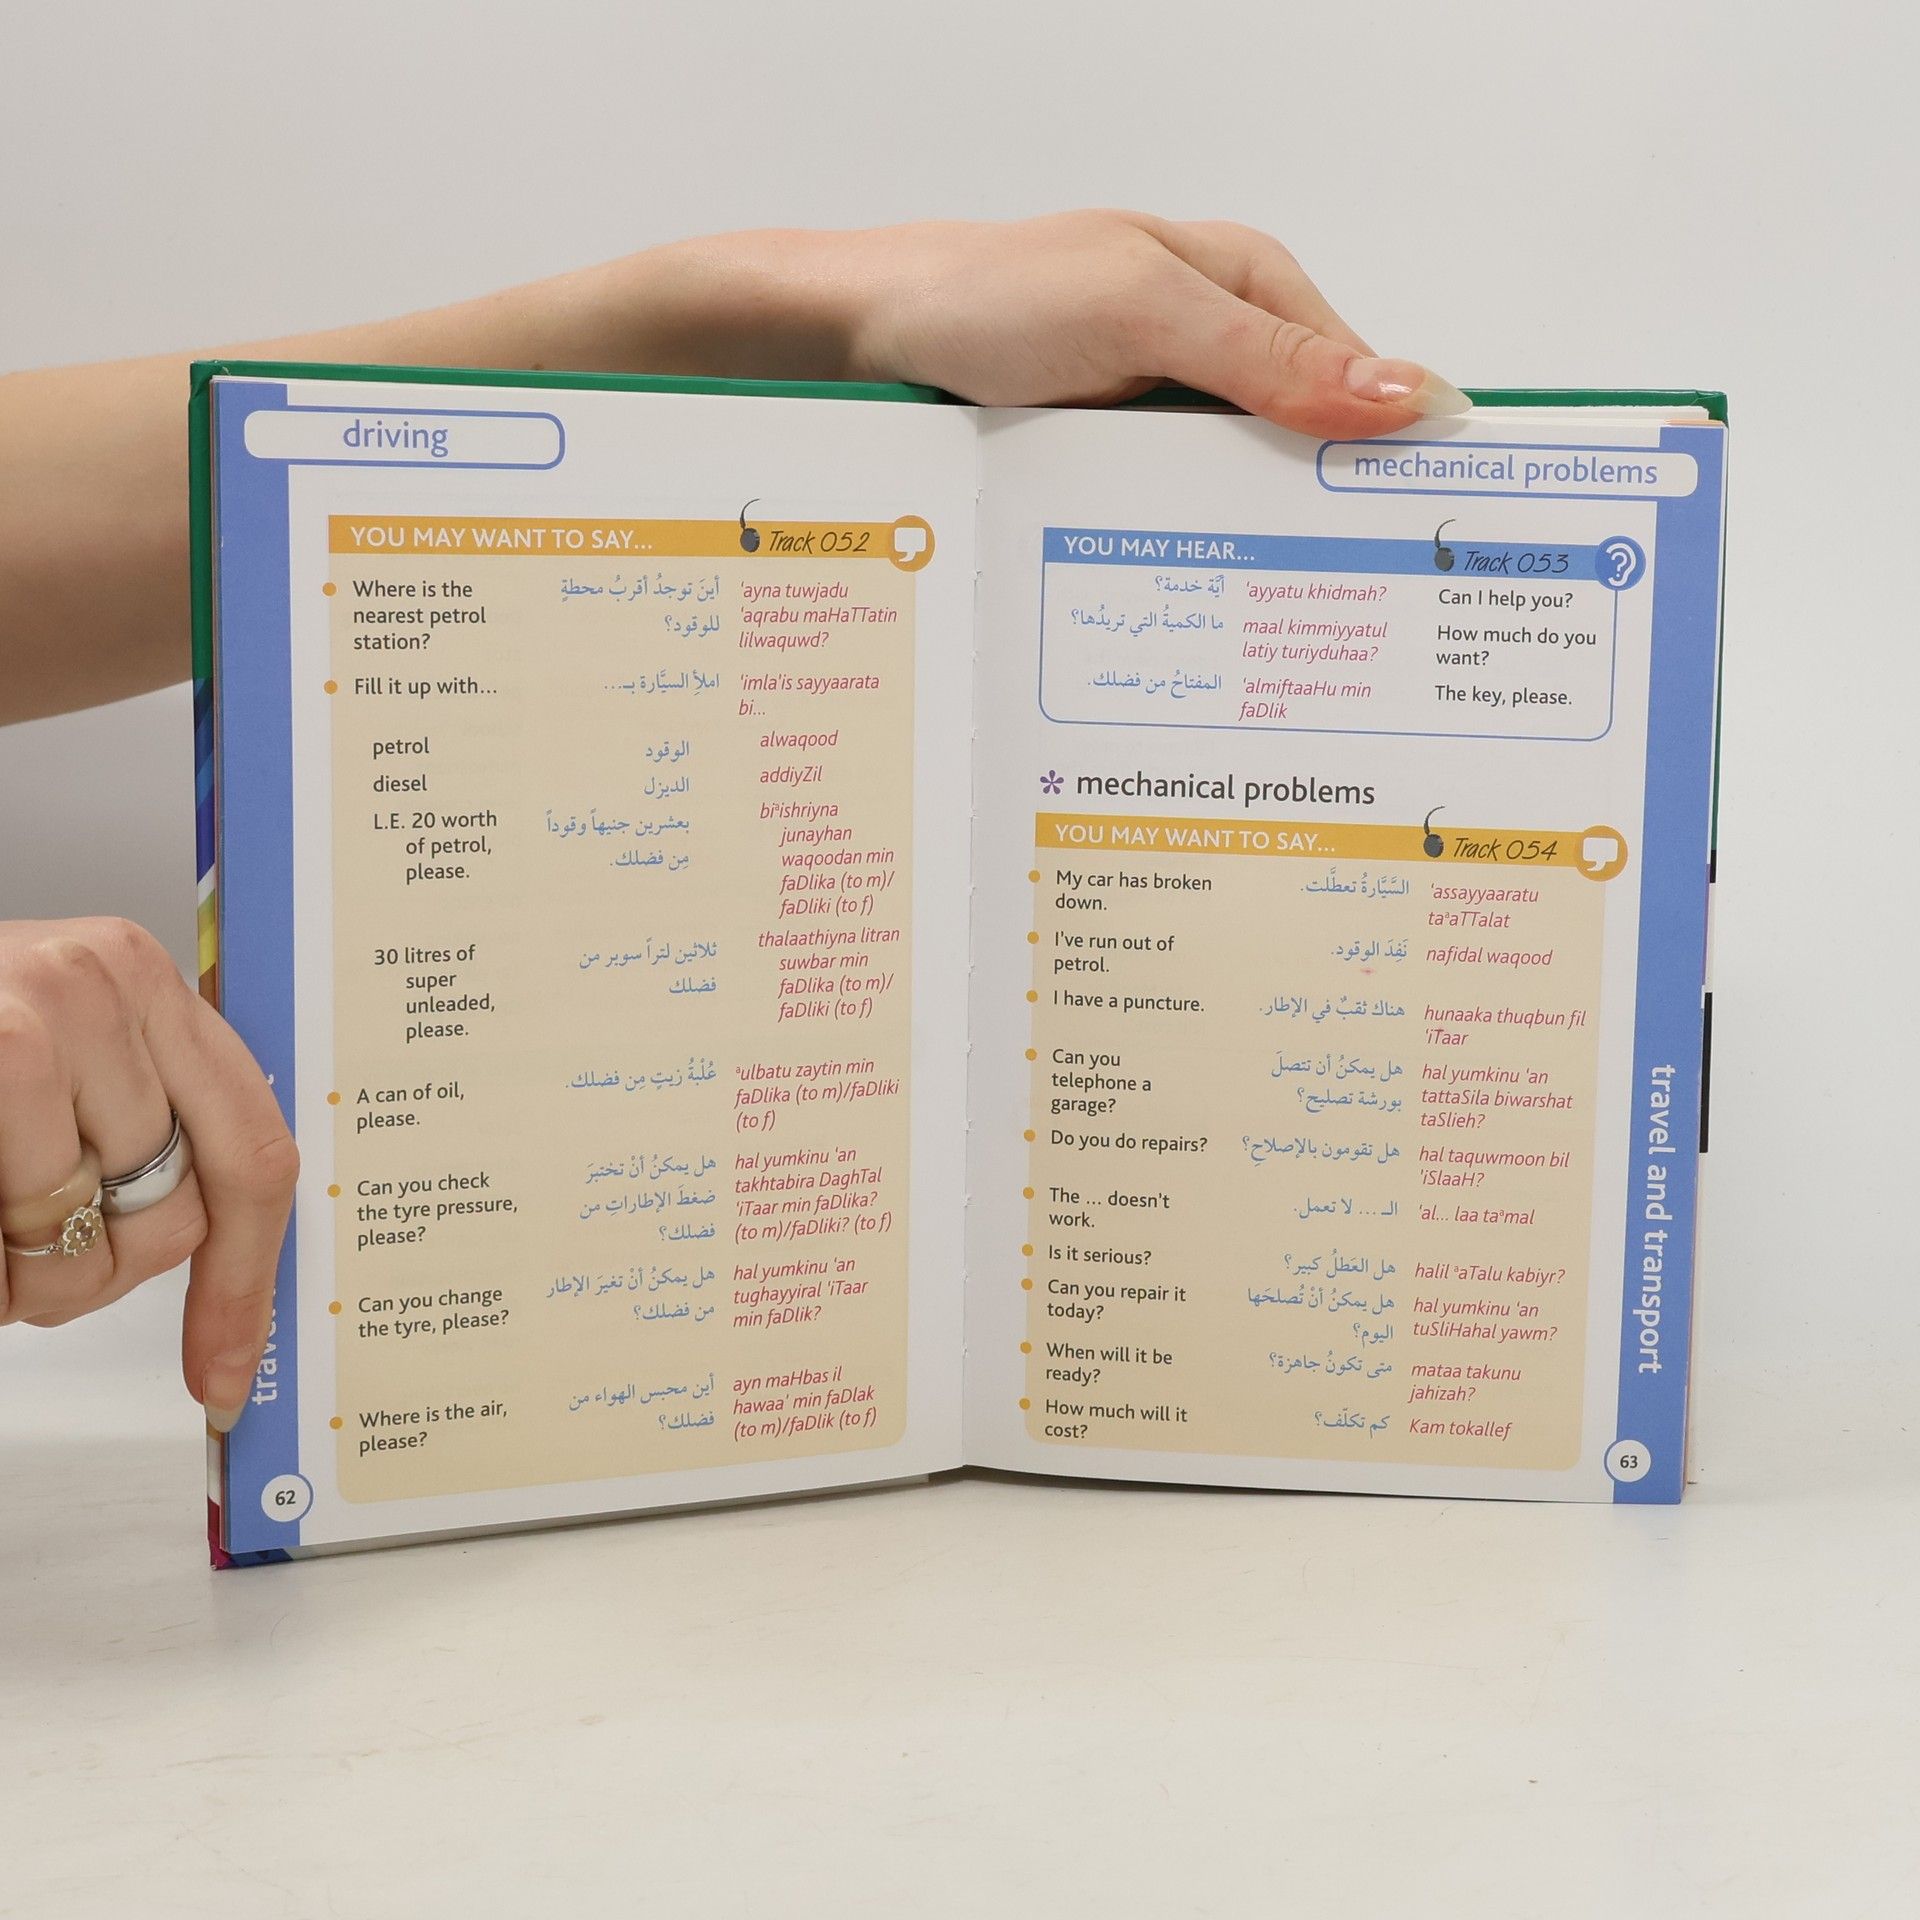 driving
YOU MAY WANT TO SAY... Track 052
Where is the
nearest petrol
station?
أينَ توجدُ أقربُ محطةٍ
للوقود؟
'ayna tuwjadu
'aqrabu maHaTTatin
lilwaquwd?
Fill it up with...
املأِ السيَّارة بـ...
'imla'is sayyaarata
bi...
petrol
الوقود
alwaqood
diesel
الديزل
addiyZil
L.E. 20 worth
of petrol,
please.
بعشرين جنيهاً وقوداً
مِن فضلك.
biᵃishriyna
junayhan
waqoodan min
faDlika (to m)/
faDliki (to f)
30 litres of
super
unleaded,
please.
ثلاثين لتراً سوبر من
فضلك
thalaathiyna litran
suwbar min
faDlika (to m)/
faDliki (to f)
A can of oil,
please.
عُلْبةُ زيتٍ مِن فضلك.
ᵃulbatu zaytin min
faDlika (to m)/faDliki
(to f)
Can you check
the tyre pressure,
please?
هل يمكنُ أنْ تختبرَ
ضغطَ الإطاراتِ من
فضلك؟
hal yumkinu 'an
takhtabira DaghTal
'iTaar min faDlika?
(to m)/faDliki? (to f)
Can you change
the tyre, please?
هل يمكنُ أنْ تغيرَ الإطار
من فضلك؟
hal yumkinu 'an
tughayyiral 'iTaar
min faDlik?
Where is the air,
please?
أين محبس الهواء من
فضلك؟
ayn maHbas il
hawaa' min faDlak
(to m)/faDlik (to f)
62
mechanical problems
YOU MAY HEAR... Track 053
أيَّة خدمة؟
'ayyatu khidmah?
Can I help you?
ما الكميةُ التي تريدُها؟
maal kimmiyyatul
latiy turiyduhaa?
How much do you
want?
المفتاحُ من فضلك.
'almiftaaHu min
faDlik
The key, please.
* mechanical problems
YOU MAY WANT TO SAY... Track 054
My car has broken
down.
السَّيَّارةُ تعطَّلت.
'assayyaaratu
taᵃaTTalat
I've run out of
petrol.
نَفِدَ الوقود.
nafidal waqood
I have a puncture.
هناك ثقبٌ في الإطار.
hunaaka thuqbun fil
'iTaar
Can you
telephone a
garage?
هل يمكنُ أن تتصلَ
بورشة تصليح؟
hal yumkinu 'an
tattaSila biwarshat
taSlieh?
Do you do repairs?
هل تقومون بالإصلاحِ؟
hal taquwmoon bil
'iSlaaH?
The ... doesn't
work.
الـ ... لا تعمل.
'al... laa taᵃmal
Is it serious?
هل العَطلُ كبير؟
halil ᵃaTalu kabiyr?
Can you repair it
today?
هل يمكنُ أنْ تُصلحَها
اليوم؟
hal yumkinu 'an
tuSliHahal yawm?
When will it be
ready?
متى تكونُ جاهزة؟
mataa takunu
jahizah?
How much will it
cost?
كم تكلّف؟
Kam tokallef
travel and transport
63